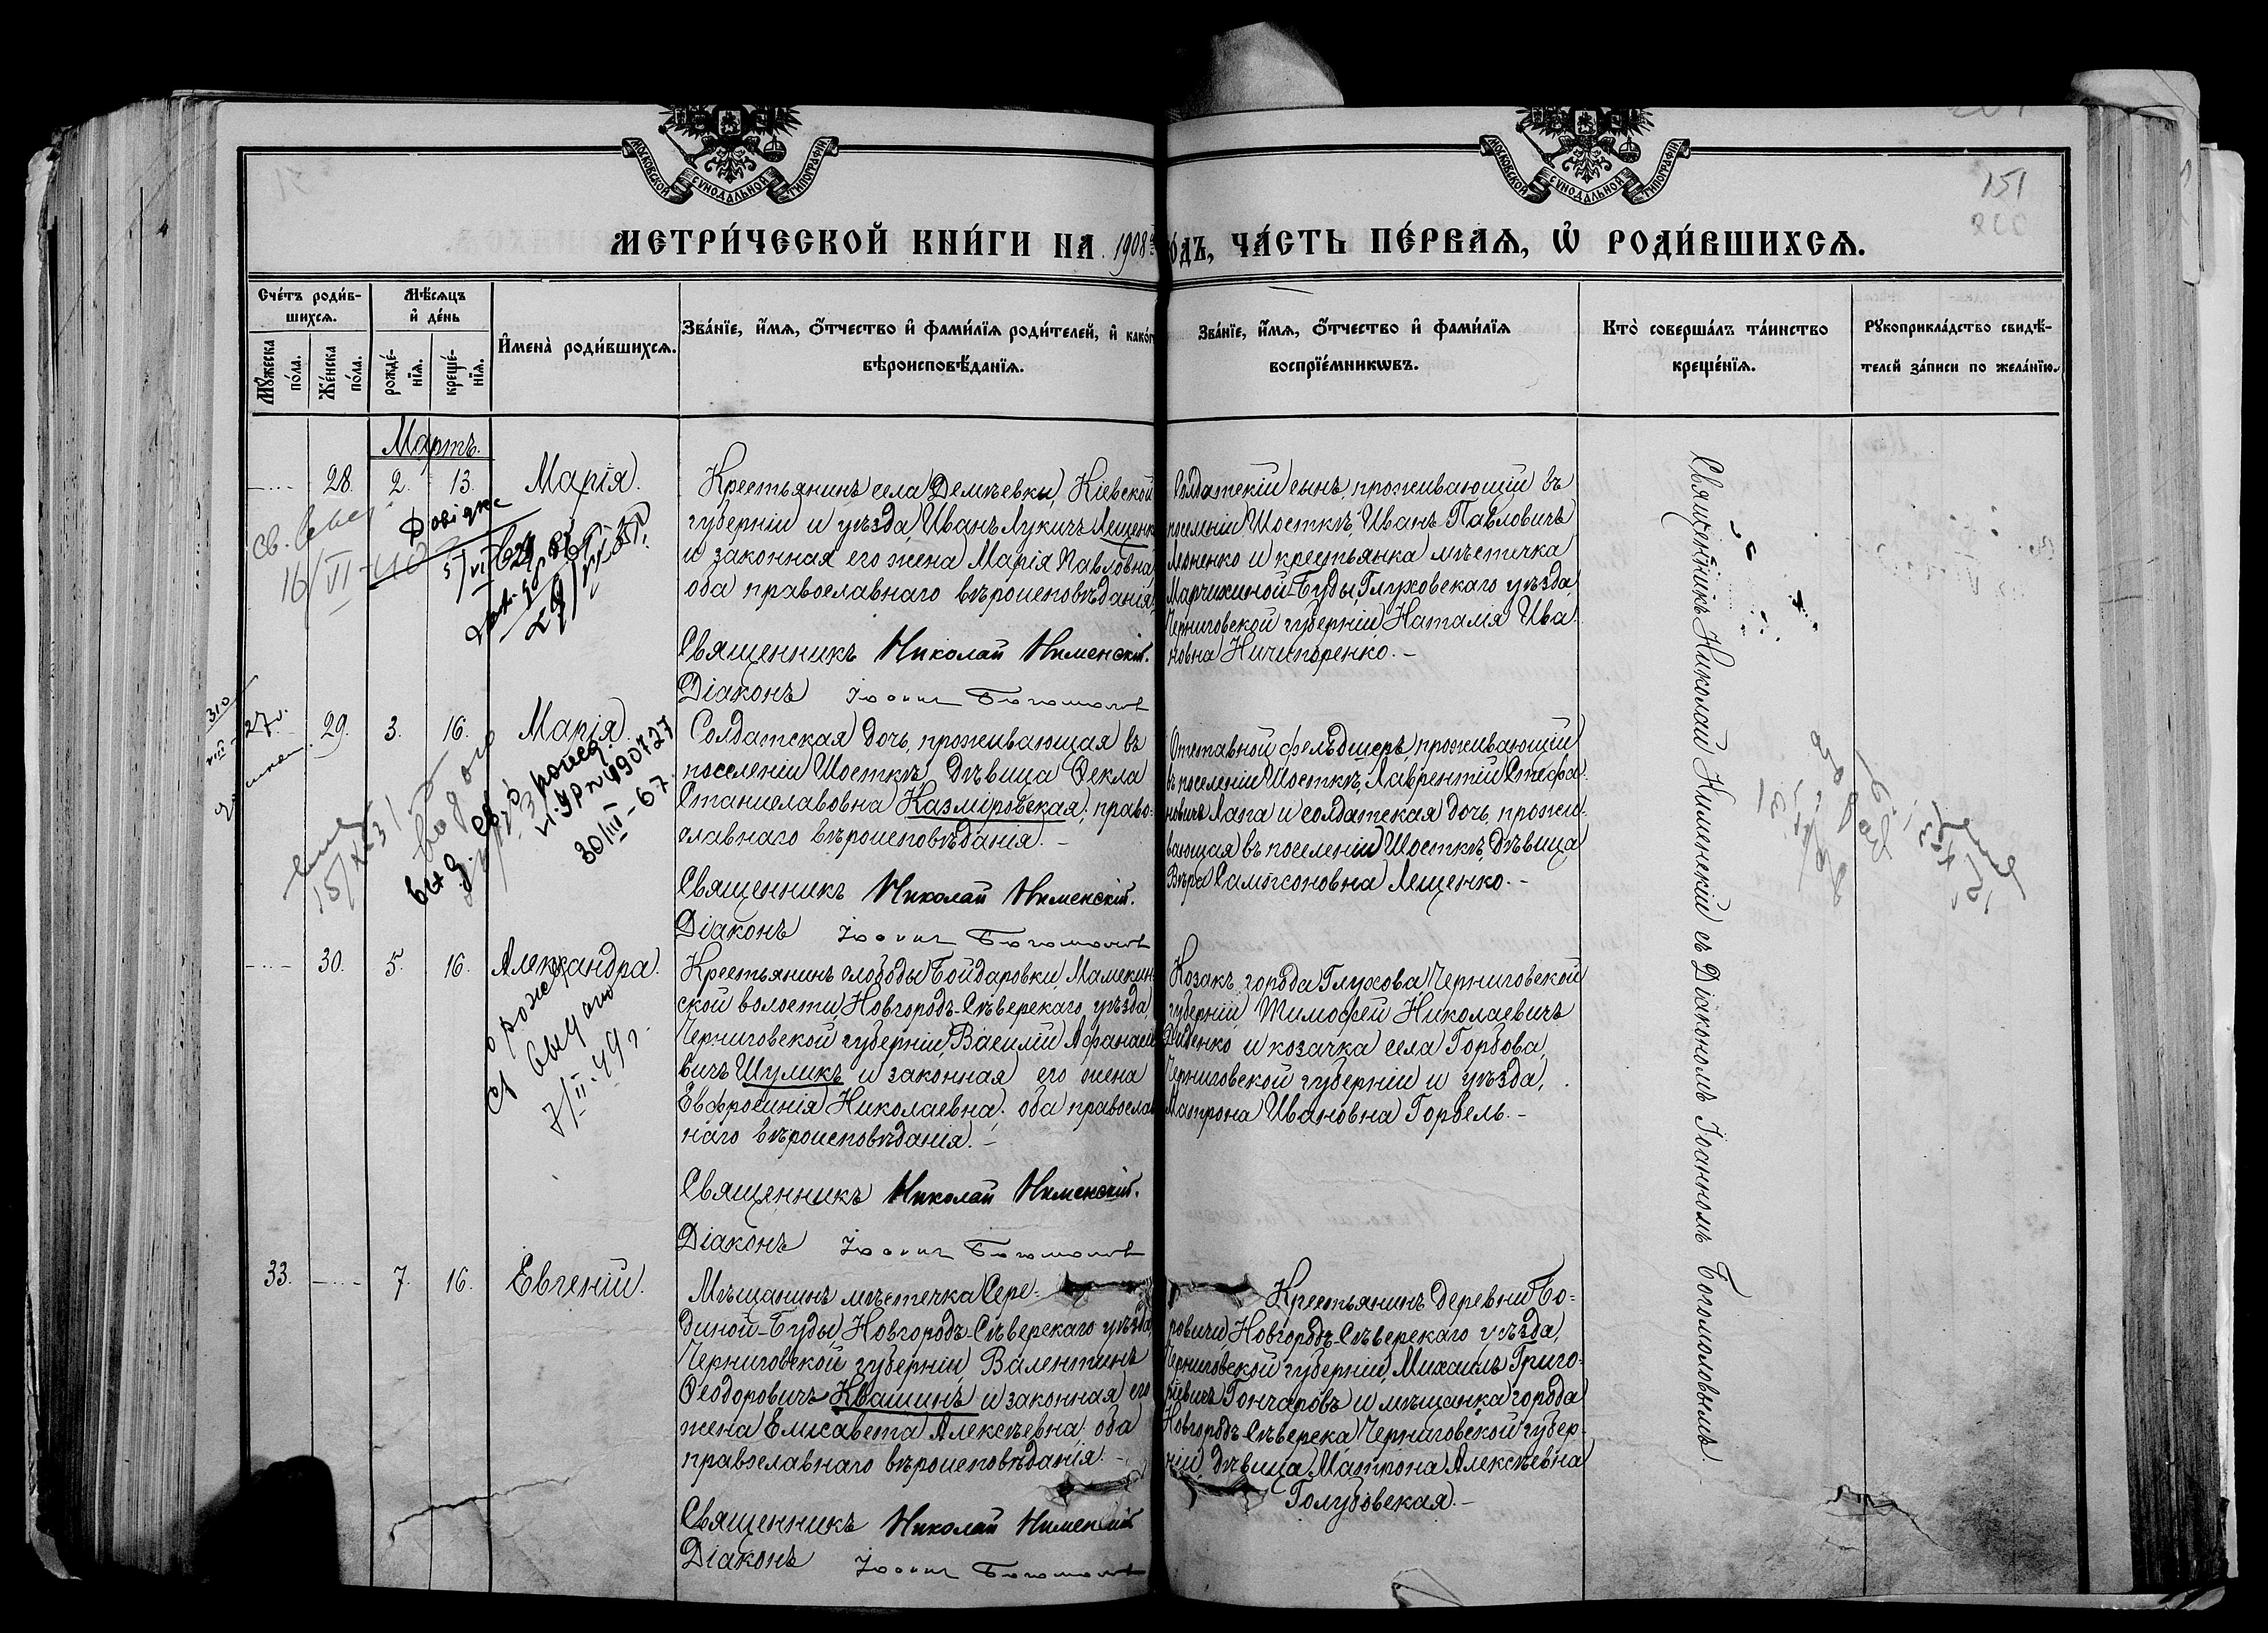 МОСКОВСКОЙ СѴНОДАЛЬНОЙ ТИПОГРАФІИ
МОСКОВСКОЙ СѴНОДАЛЬНОЙ ТИПОГРАФІИ
151
МЕТРИ́ЧЕСКОЙ КНИ́ГИ НА 1908 ГО́ДЪ, ЧА́СТЬ ПЕ́РВАѦ, Ѡ҆ РОДИ́ВШИХСѦ.
Сче́тъ роди́в-
шихсѧ.
Мѣ́сѧцъ
и҆ де́нь
Мꙋ́жеска
по́ла.
Же́нска
по́ла.
рожде́-
нїѧ.
креще́-
нїѧ.
И҆мена̀ роди́вшихсѧ.
Зва́нїе, и҆́мѧ, ѻ҆́тчество и҆ фами́лїѧ роди́телей, и҆ како́гѡ
вѣроисповѣ́данїѧ.
Зва́нїе, и҆́мѧ, ѻ҆́тчество и҆ фами́лїѧ
воспрїе́мникѡвъ.
Кто̀ соверша́лъ та́инство
креще́нїѧ.
Рꙋкоприкла́дство свидѣ́-
телей за́писи по жела́нїю.
Мартъ.
28. 2. 13. Марія.
Крестьянинъ села Демѣевки, Кіевской
губерніи и уѣзда, Иванъ Лукичъ Лещенко
и законная его жена Марія Павловна,
оба православнаго вѣроисповѣданія.
Священникъ Николай Нименскій.
Діаконъ Іоаннъ Богомоловъ
Солдатскій сынъ, проживающій въ
поселеніи Шосткѣ, Иванъ Павловичъ
и крестьянка мѣстечка
Марчихиной-Буды, Глуховскаго уѣзда,
Черниговской губерніи, Наталія Ива-
новна Ничипоренко.-
Довідка
29. 3. 16. Марія.
Солдатская дочь, проживающая въ
поселеніи Шосткѣ, дѣвица Ѳекла
Станиславовна Казміровская; право-
славнаго вѣроисповѣданія.-
Священникъ Николай Нименскій.
Діаконъ Іоаннъ Богомоловъ
Отставной фельдшеръ, проживающій
въ поселеніи Шосткѣ, Лаврентій Стефа-
новичъ Лапа и солдатская дочь, прожи-
вающая въ поселеніи Шосткѣ, дѣвица
Вѣра Сампсоновна Лещенко.-
490727
30/III-67.
30. 5. 16. Александра.
Крестьянинъ слободы Бойдаровки, Мамекин-
ской волости, Новгородъ-Сѣверскаго уѣзда,
Черниговской губерніи, Василій Афанасіе-
вичъ Шуликъ и законная его жена
Евфросинія Николаевна; оба православ-
наго вѣроисповѣданія.-
Священникъ Николай Нименскій.
Діаконъ Іоаннъ Богомоловъ
Козакъ города Глухова Черниговской
губерніи, Тимофей Николаевичъ
Дейденко и козачка села Горбова,
Черниговской губерніи и уѣзда,
Матрона Ивановна Горбель.-
о рожд
выдано
7/II-49 г.
33. 7. 16. Евгеній.
Мѣщанинъ мѣстечка Сере-
диной-Буды, Новгородъ-Сѣверскаго уѣзда,
Черниговской губерніи, Валентинъ
Ѳеодоровичъ Квашинъ и законная его
жена Елисавета Алексѣевна; оба
православнаго вѣроисповѣданія.-
Священникъ Николай Нименскій
Діаконъ Іоаннъ Богомоловъ
Крестьянинъ деревни Бо-
ровичи, Новгородъ-Сѣверскаго уѣзда,
Черниговской губерніи, Михаилъ Григо-
ріевичъ Гончаровъ и мѣщанка города
Новгородъ-Сѣверска Черниговской губер-
ніи, дѣвица Матрона Алексѣевна
Голубовская.-
Священникъ Николай Нименскій съ Діакономъ Іоанномъ Богомоловымъ.